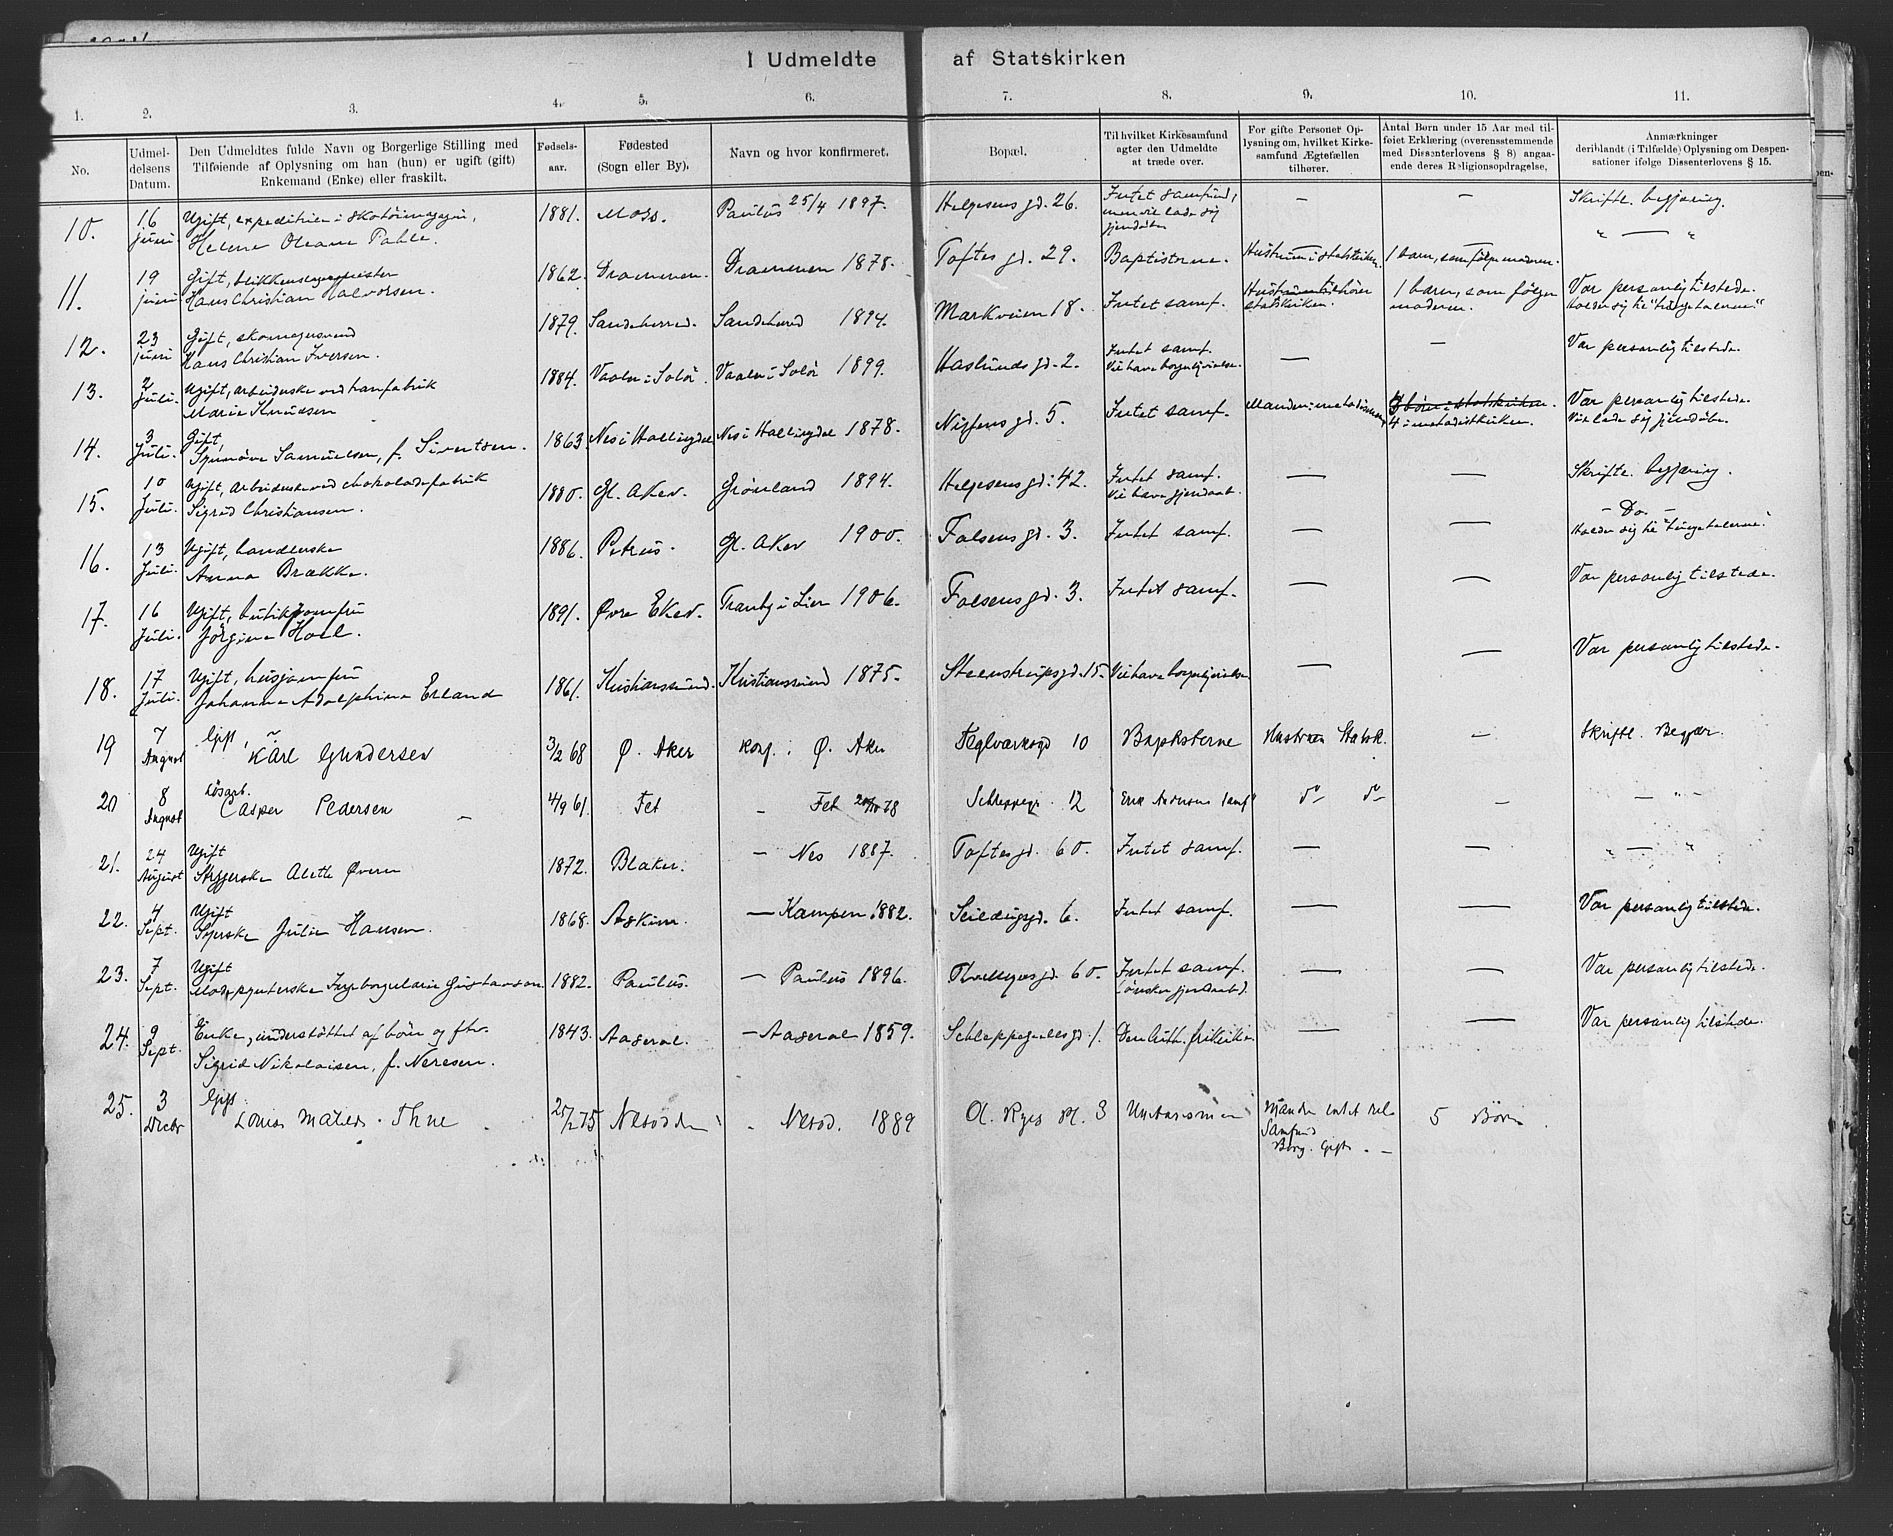 I Udmeldte af Statskirken
1. 2. 3. 4. 5. 6. 7. 8. 9. 10. 11.
No.
Udmeldelsens Datum.
Den Udmeldtes fulde Navn og Borgerlige Stilling med
Tilføiende af Oplysning om han (hun) er ugift (gift)
Enkemand (Enke) eller fraskilt.
Fødselsaar.
Fødested
(Sogn eller By).
Navn og hvor konfirmeret.
Bopæl.
Til hvilket Kirkesamfund
agter den Udmeldte
at træde over.
For gifte Personer Op-
lysning om, hvilket Kirke-
samfund Ægtefællen
tilhører.
Antal Børn under 15 Aar med til-
føiet Erklæring (overensstemmende
med Dissenterlovens § 8) angaa-
ende deres Religionsopdragelse.
Anmærkninger
deriblandt (i Tilfælde) Oplysning om Despen-
sationer ifølge Dissenterlovens § 15.
10. 16 juni Ugift, expeditrice i skotøimagasin, 1881. Moss. Paulus 25/4 1897. Helgesens gd. 26. Intet samfund, — — Skriftl. begjæring.
Helene Oleane Pahle. men vil lade sig
gjendøbe
11. 19 juni Gift, blikkenslagermester 1862. Drammen. Drammen 1878. Toftes gd. 29. Baptisterne. Hustruen i statskirken. 1 barn, som følger moderen. " — "
Hans Christian Halvorsen.
12. 23 juni Gift, skomagersvend 1879. Sandeherred. Sandeherred 1894. Markveien 18. Intet samf. Hustruen tilhører 1 barn, som følger Var personlig tilstede.
Hans Christian Iversen. statskirken. moderen. Holder sig til "tungetalerne"
13. 2 Juli. Ugift, arbeiderske ved hanfabrik 1884. Vaaler i Solør. Vaaler i Solør 1899. Haslunds gd. 2. Intet samf. — — Var personlig tilstede.
Marie Knudsen Vil have borgerlig vielse.
14. 3 Juli. Gift, 1863. Nes i Hallingdal Nes i Hallingdal 1878. Nissens gd. 5. Intet samf. Manden i metodistk. 3 børn i statskirken. Var personlig tilstede.
Synnøve Samuelsen, f. Sivertsen. 4 i metodistkirken. Vil lade sig gjendøbe.
15. 10 Juli. Ugift, arbeiderske ved chokoladefabrik 1880. Gl. Aker. Grønland 1894. Helgesens gd. 42. Intet samf. — — Skriftl. begjæring.
Sigrid Christiansen. Vil have gjendaab.
16. 13 Juli. Ugift, handlerske 1886. Petrus. Gl. Aker 1900. Falsens gd. 3. Intet samf. — — – Do. –
Anna Brække. Holder sig til "tungetalerne".
17. 16 Juli. Ugift, butikjomfru 1891. Øvre Eker. Tranby i Lier 1906. Falsens gd. 3. Intet samf. — — Var personlig tilstede.
Jørgine Hoel.
18. 17 Juli. Ugift, husjomfru 1861. Kristianssund. Kristianssund 1875. Steenstrupsgd. 15. Vil have borgerlig vielse — — Var personlig tilstede.
Johanna Adolphine Erland
19 7 August Gift, Karl Gundersen 3/2 68 Ø. Aker konf. i Ø. Aker Teglværksgd 10 Baptisterne Hustruen Statsk. — Skriftl. Begjær.
20 8 August Løsarb. Casper Pedersen 4/9 61. Fet — Fet 78 Schleppegr. 12 do do — — " —
21. 24 August Ugift 1872. Blaker. — Nes 1887. Toftes gd. 60. Intet samf. — — " — "
Strygerske Alette Øveren
22. 4 Sept. Ugift 1868. Askim. — Kampen 1882. Seildugsgd. 6. Intet samf. — — Var personlig tilstede.
Syerske Julie Hansen.
23. 7 Sept. Ugift 1882. Paulus. — Paulus 1896. Thv. Meyers gd. 60. Intet samf. — — Var personlig tilstede.
Ingeborg Marie Gustavson (ønsker gjendaab).
24. 9 Sept. Enke, understøttet af børn og ftv. 1843. Aaseral. — Aaseral 1859. Schleppegrells gd. 1. Den luth. frikirke — — Var personlig tilstede.
Sigrid Nikolaisen, f. Neresen.
25. 3 Decbr Gift. 25/2 75 Nesodden " Nesod. 1889 Ol. Ryes Pl. 3 Unitarismen Manden intet rel. 5 Børn
Lovise Matilde Thue Samfund
Borg. Gift. —